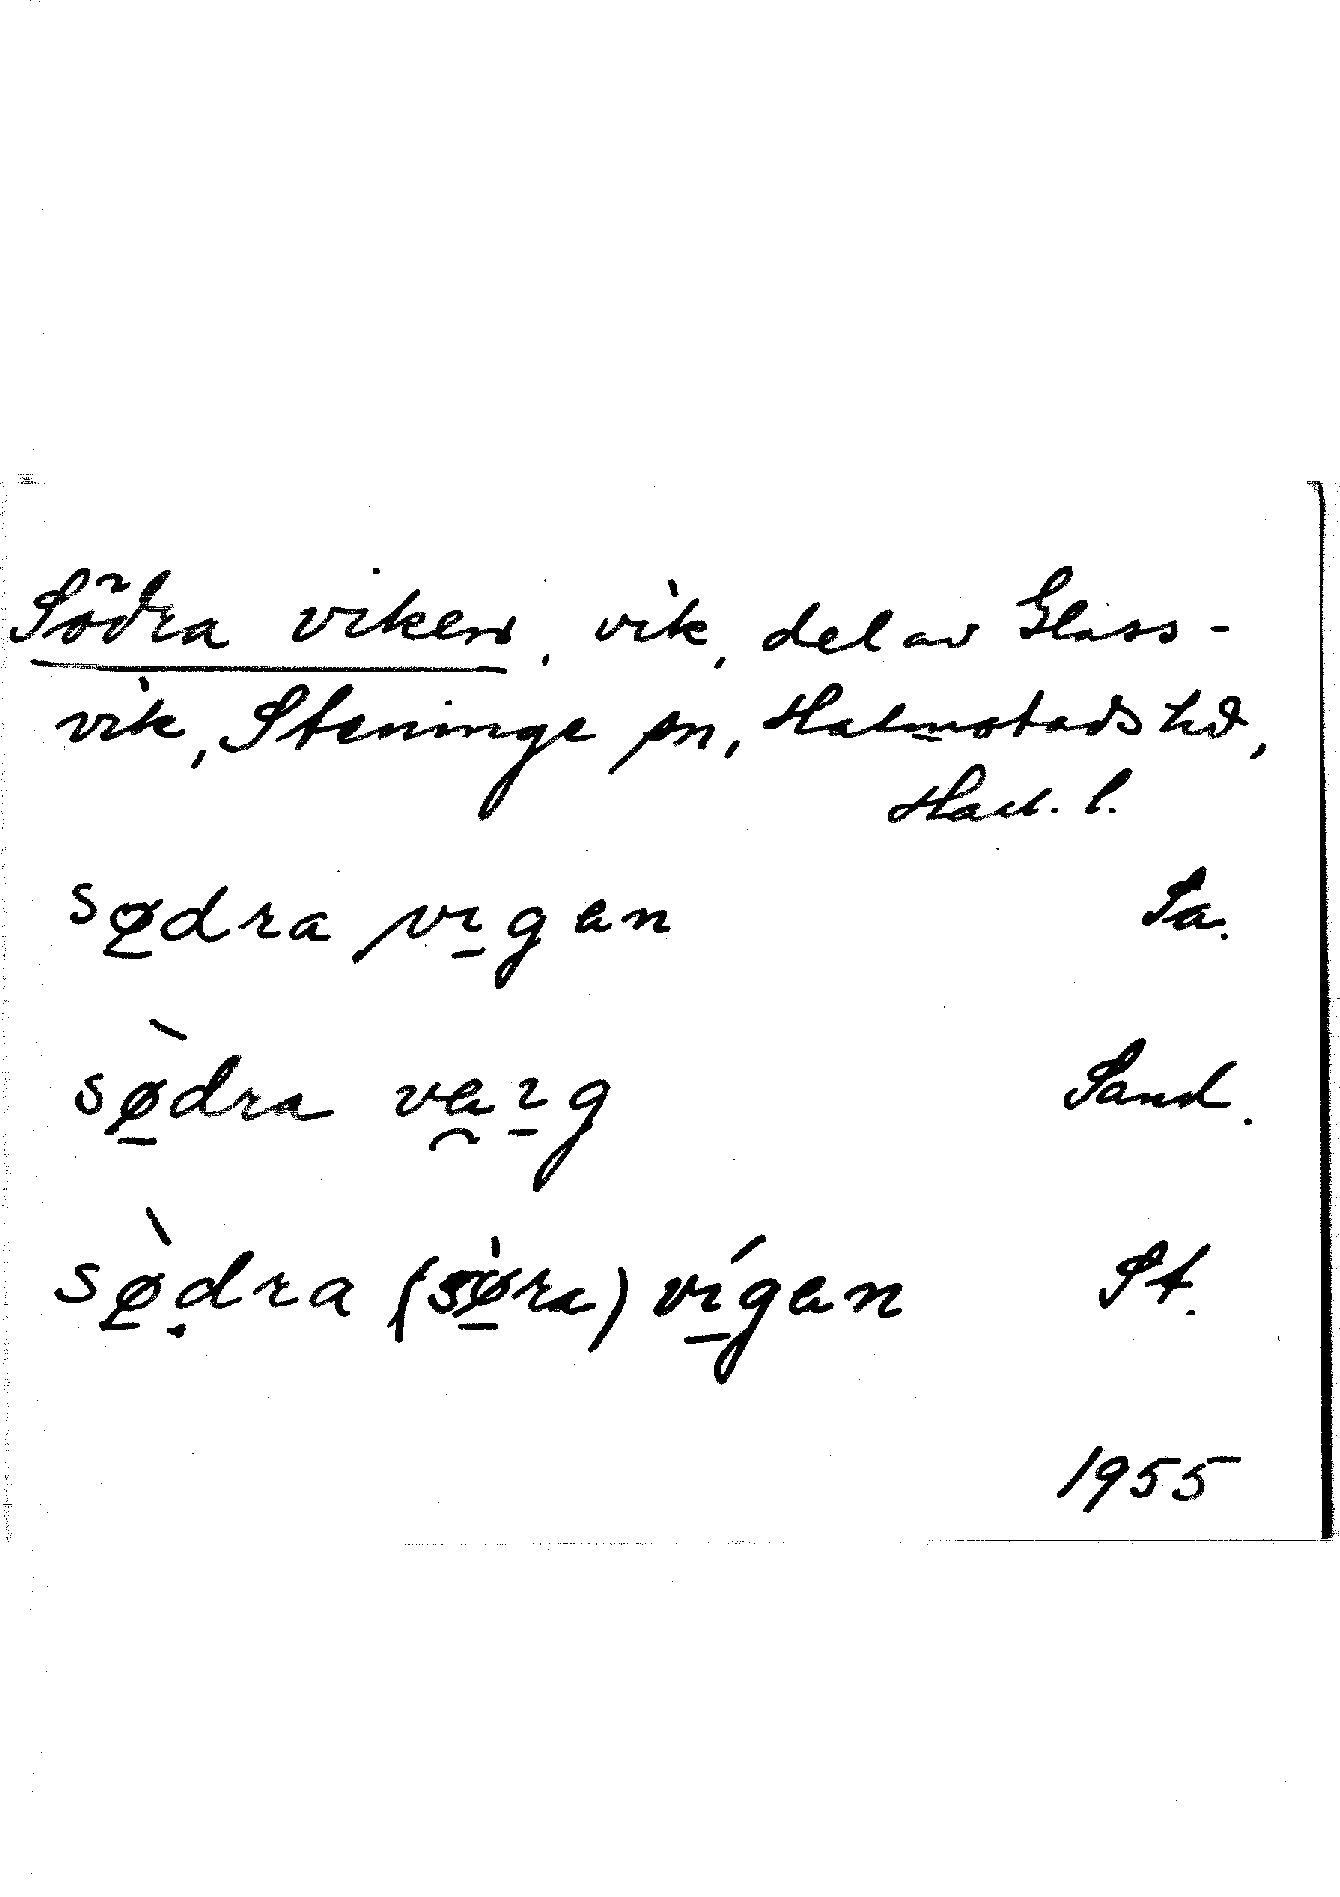 Södra viken, vik, del av Glass-
vik, Steninge sn, Halmstads hd,
Hall. l.
sø̱dra vi̱gan Sa.
sø̱̀dra va̯i̱g Sand.
sø̱̀ḍra (sø̱̀ra) ví̱gan St.
1955